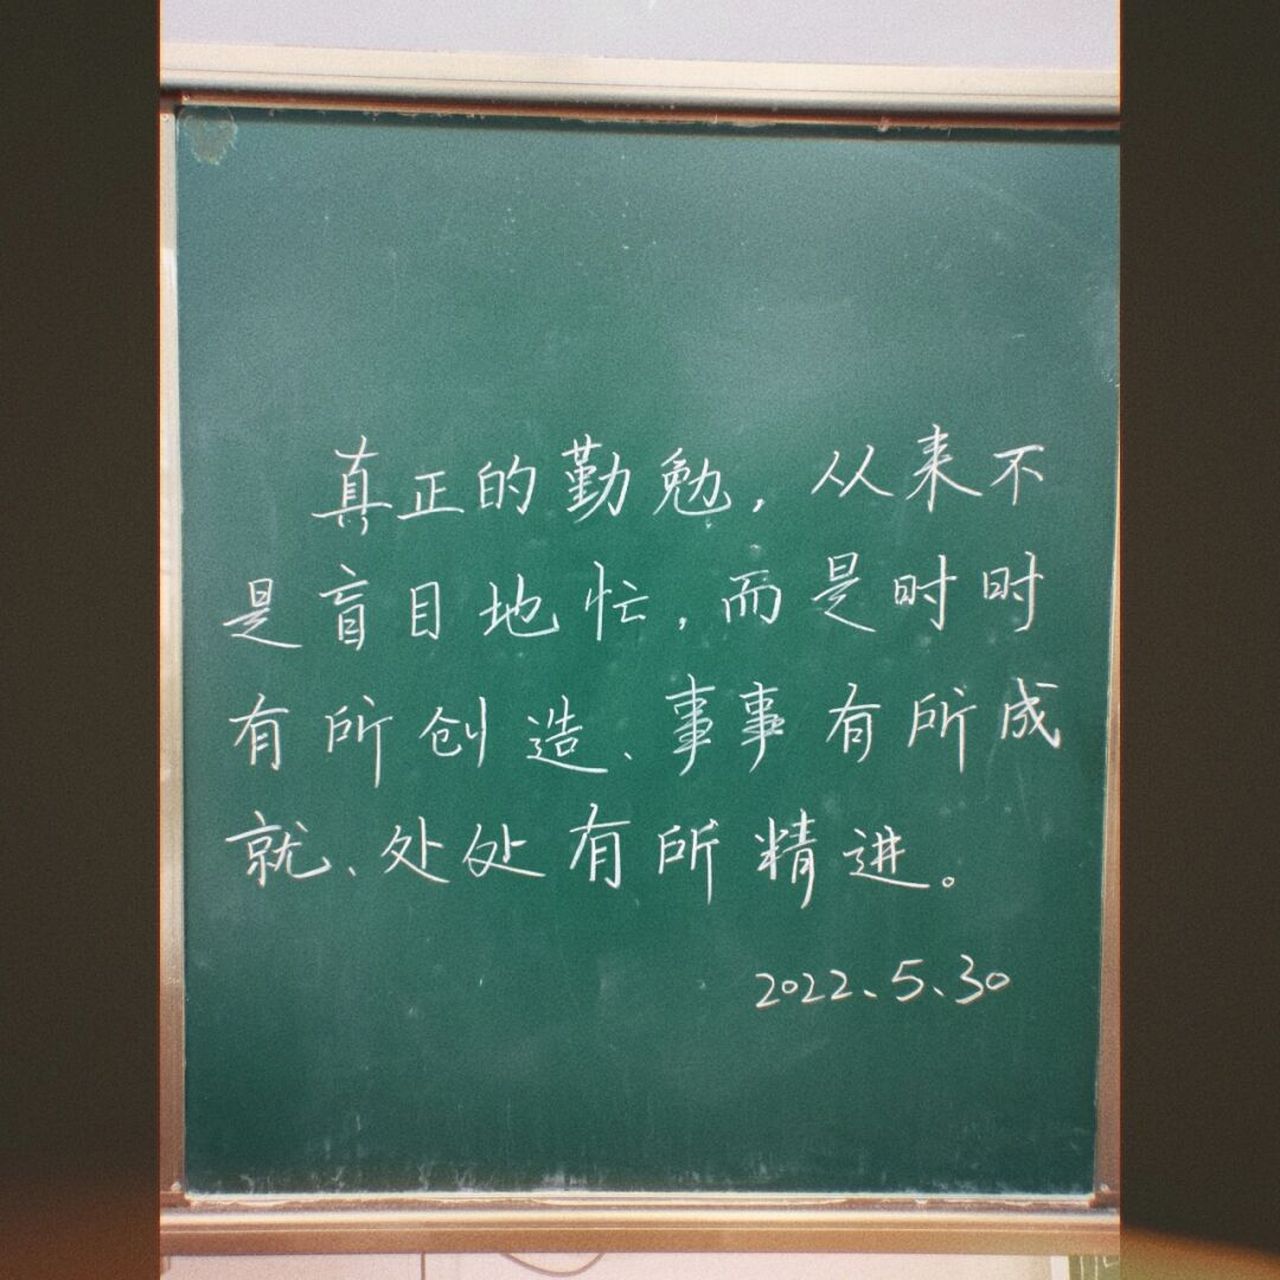 真正的勤勉，从来不
是盲目地忙，而是时时
有所创造、事事有所成
就、处处有所精进。
2022、5、30